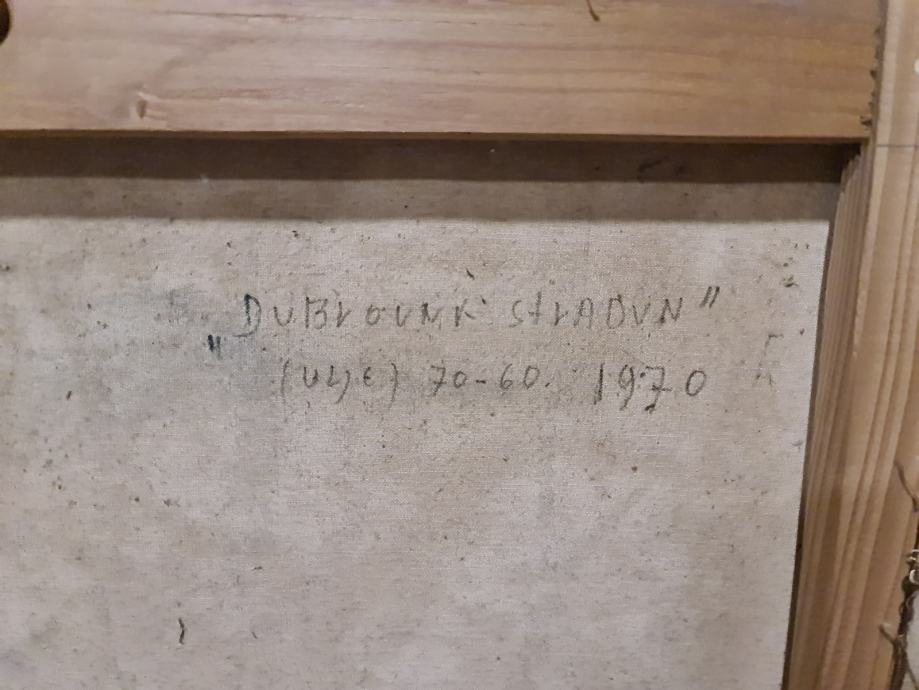 "DUBROVNK STRADUN"
(ULJE) 70-60. 1970